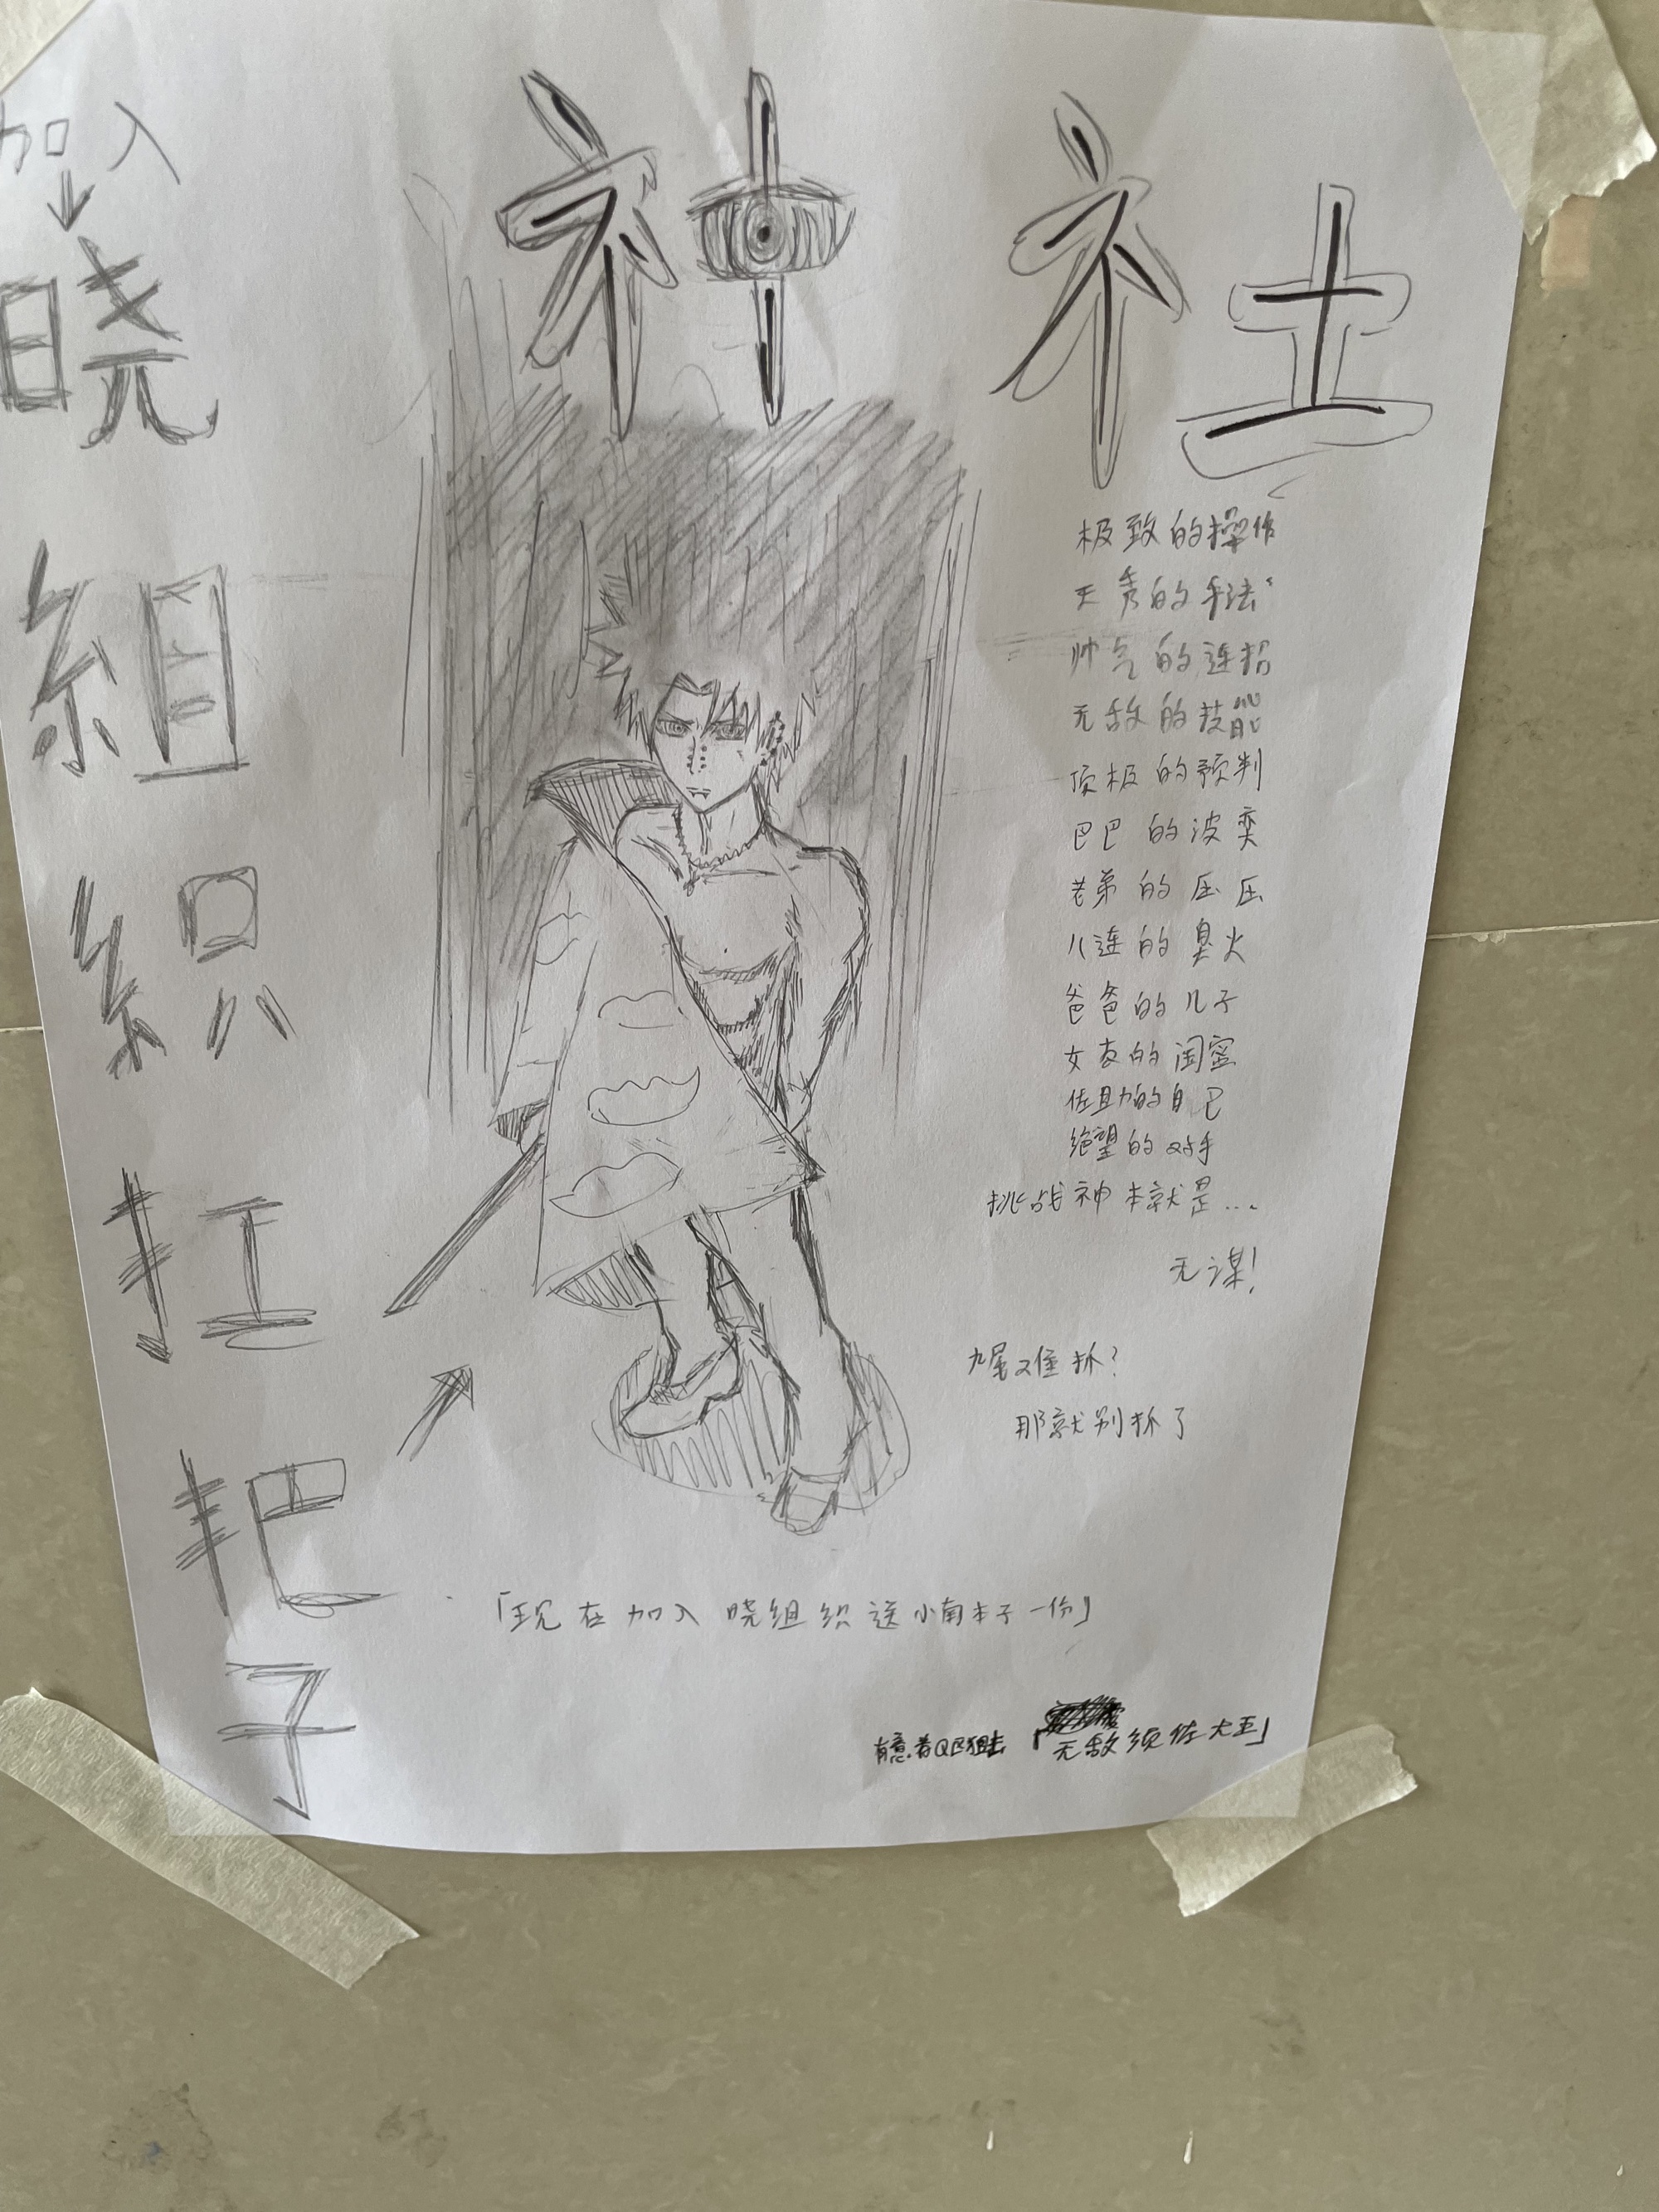 神社
加入
晓组织扛把子
极致的操作
天秀的手法
帅气的连招
无敌的技能
顶极的预判
巴巴的波奕
老弟的压压
八连的臭火
爸爸的儿子
女友的闺蜜
佐助的自己
绝望的对手
挑战神本就是...
无谋!
九尾难抓?
那就别抓了
「现在加入晓组织送小南本子一份」
有意者Q区狙击「无敌须佐大王」